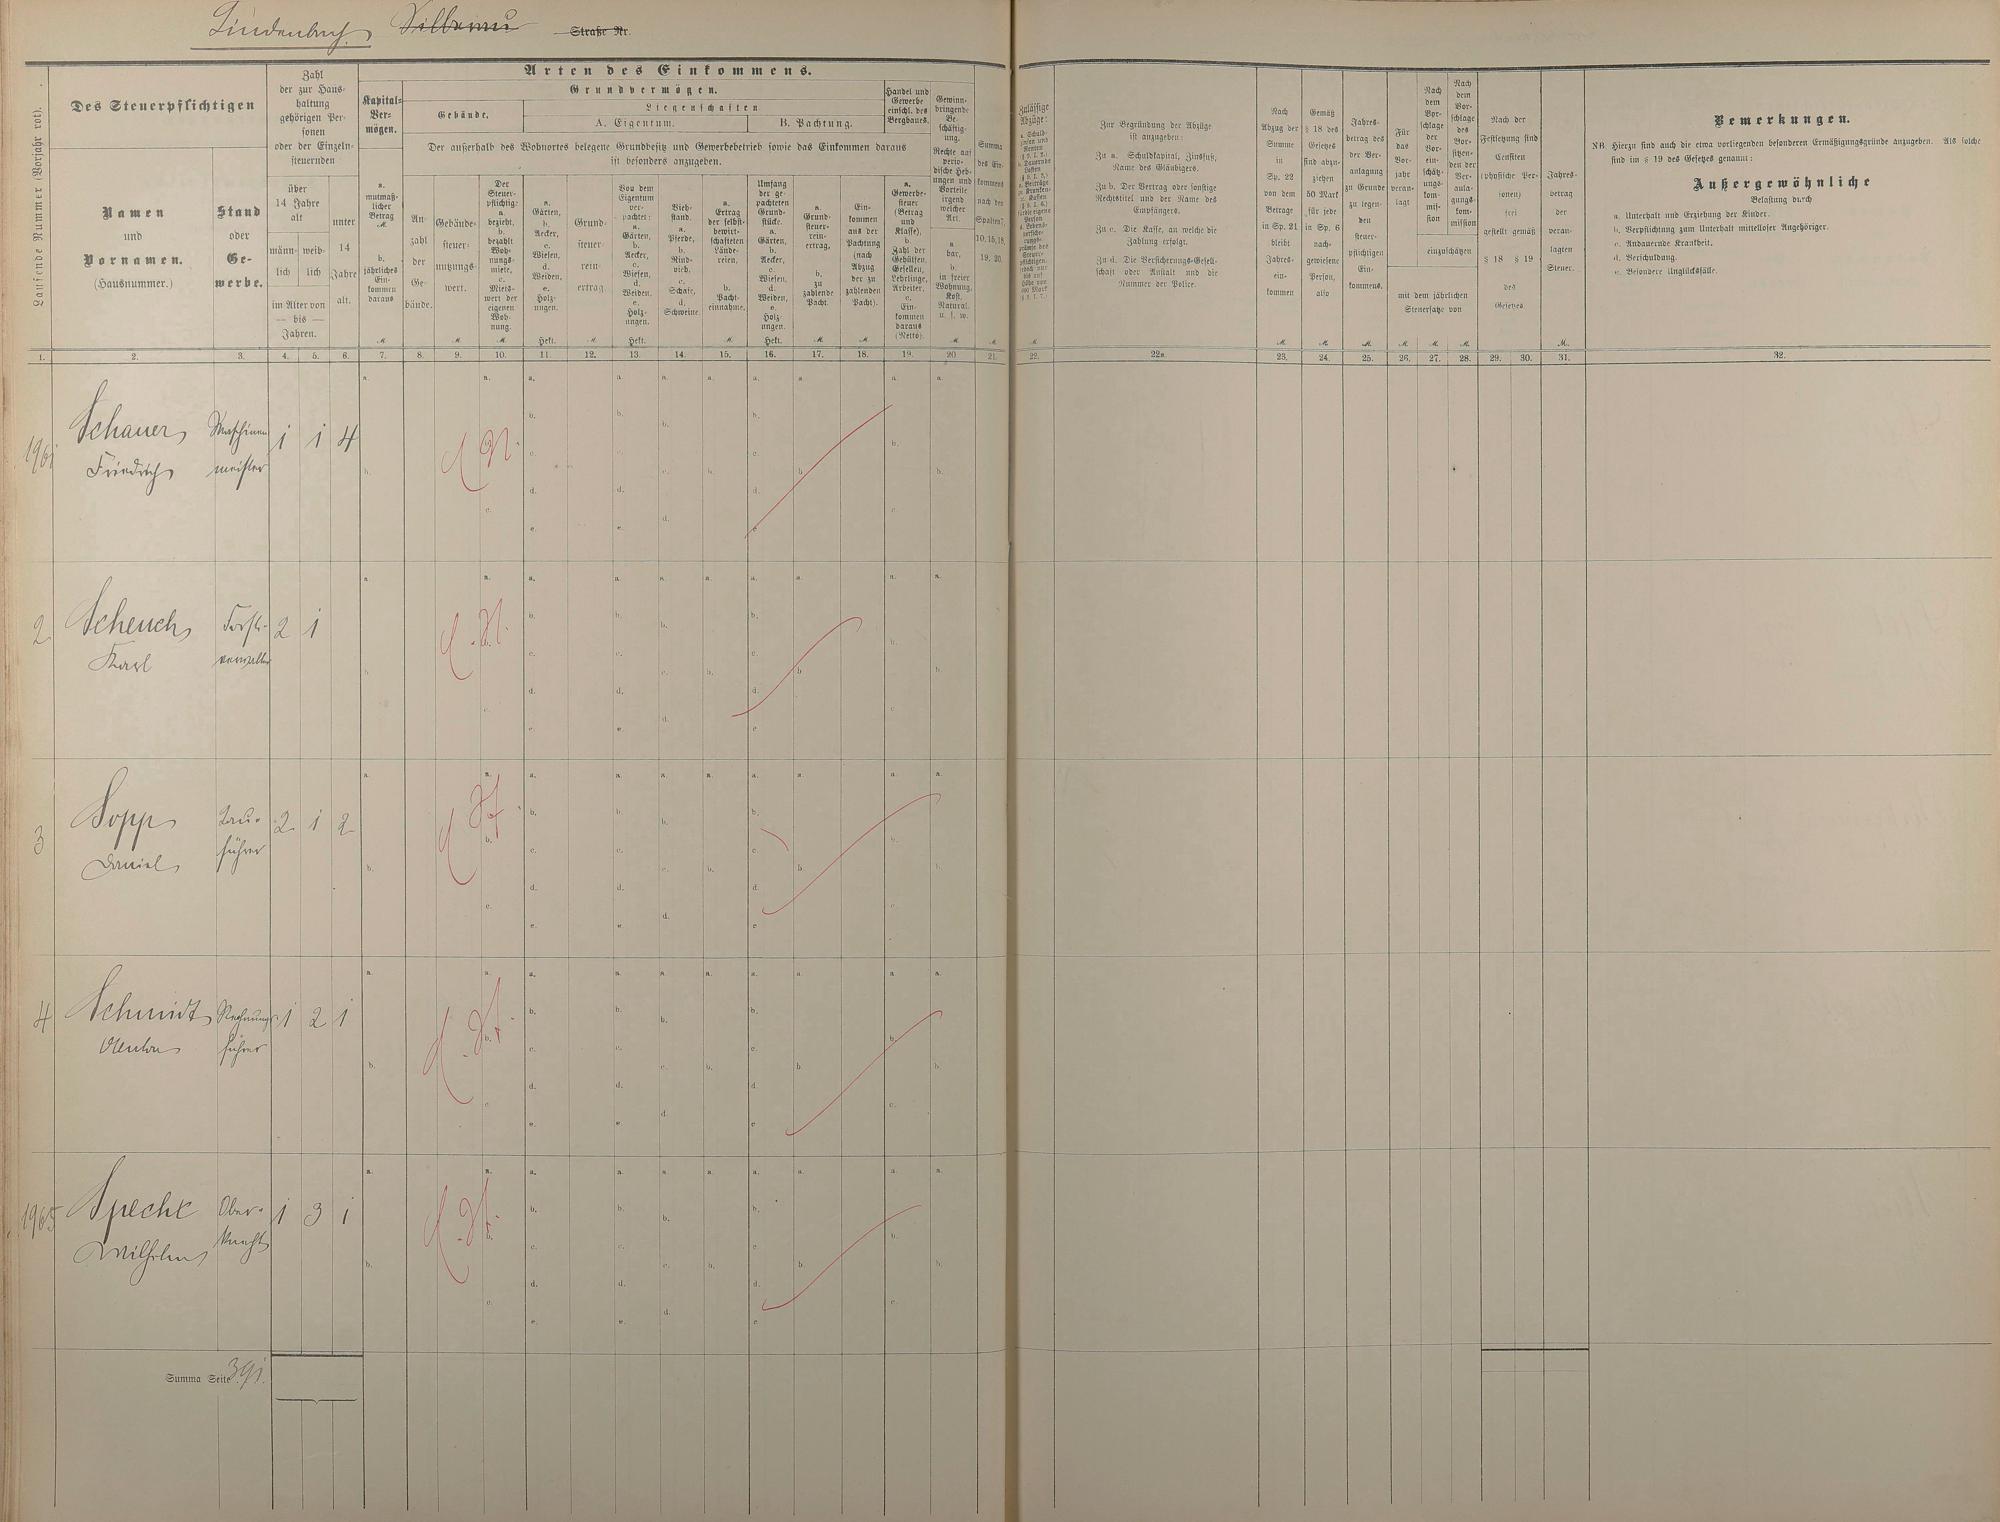 Lindenbach Silberau Straße Nr.
Laufende Nummer (Vorjahr rot).
Des Steuerpflichtigen
Namen
und
Vornamen.
(Hausnummer.)
Stand
oder
Ge-
werbe.
Zahl
der zur Haus-
haltung
gehörigen Per-
sonen
oder der Einzeln-
steuernden
über
14 Jahre
alt
männ-
lich
weib-
lich
im Alter von
— bis —
Jahren.
unter
14
Jahre
alt.
Arten des Einkommens.
Kapital-
Ver-
mögen.
a.
mutmaß-
licher
Betrag
M.
b.
jährliches
Ein-
kommen
daraus
M
Grundvermögen.
Gebäude.
Liegenschaften
A. Eigentum.
B. Pachtung.
Der außerhalb des Wohnortes belegene Grundbesitz und Gewerbebetrieb sowie das Einkommen daraus
ist besonders anzugeben.
An-
zahl
der
Ge-
bäude.
Gebäude-
steuer-
nutzungs-
wert.
M
Der
Steuer-
pflichtig:
a.
bezieht,
b.
bezahlt
Woh-
nungs-
miete,
c.
Miets-
wert der
eigenen
Woh-
nung.
M
a.
Gärten,
b.
Aecker,
c.
Wiesen,
d.
Weiden,
e.
Holz-
ungen.
Hekt.
Grund-
steuer-
rein-
ertrag.
Von dem
Eigentum
ver-
pachtet:
a.
Gärten,
b.
Aecker,
c.
Wiesen,
d.
Weiden.
e.
Holz-
ungen.
Hekt.
Vieh-
stand.
a.
Pferde,
b.
Rind-
vieh,
c.
Schafe,
d.
Schweine.
a.
Ertrag
der selbst-
bewirt-
schafteten
Lände-
reien,
b.
Pacht-
einnahme.
M
Umfang
der ge-
pachteten
Grund-
stücke.
a.
Gärten,
b.
Aecker,
c.
Wiesen,
d.
Weiden,
e.
Holz-
ungen.
Hekt.
a.
Grund-
steuer-
rein-
ertrag,
b.
zu
zahlende
Pacht.
M
Ein-
kommen
aus der
Pachtung
(nach
Abzug
der zu
zahlenden
Pacht).
M
Handel und
Gewerbe
einschl. des
Bergbaues.
a.
Gewerbe-
steuer
(Betrag
und
Klasse),
b.
Zahl der
Gehülfen,
Gesellen,
Lehrlinge,
Arbeiter.
c.
Ein-
kommen
daraus
(Netto).
Gewinn-
bringende
Be-
schäftig-
ung.
Rechte auf
perio-
dische Heb-
ungen und
Vorteile
irgend
welcher
Art.
a.
bar,
b.
in freier
Wohnung,
Kost,
Natural.
u. s. w.
M
Summa
des Ein-
kommens
nach den
Spalten 7,
10, 15, 18,
19. 20.
Zulässige
Abzüge:
M
Zur Begründung der Abzüge
ist anzugeben:
Zu a. Schuldkapital, Zinsfuß,
Name des Gläubigers.
Zu b. Der Vertrag oder sonstige
Rechtstitel und der Name des
Empfängers.
Zu c. Die Kasse, an welche die
Zahlung erfolgt.
Zu d. Die Versicherungs-Gesell-
schaft oder Anstalt und die
Nummer der Police.
Nach
Abzug der
Summe
in
Sp. 22
von dem
Betrage
in Sp. 21
bleibt
Jahres-
ein-
kommen
M
Gemäß
§ 18 des
Gesetzes
sind abzu-
ziehen
50 Mark
für jede
in Sp. 6
nach-
gewiesene
Person,
also
M
Jahres-
betrag des
der Ver-
anlagung
zu Grunde
zu legen-
den
steuer-
pflichtigen
Ein-
kommens.
M
Für
das
Vor-
jahr
veran-
lagt
M
Nach
dem
Vor-
schlage
der
Vor-
ein-
schätz-
ungs-
kom-
mis-
sion
Nach
dem
Vor-
schlage
des
Vor-
sitzen-
den der
Ver-
anla-
gungs-
kom-
mission
einzuschätzen
mit dem jährlichen
Steuersatze von
M M
Nach der
Festsetzung sind
Censiten
(physische Per-
sonen)
frei
gestellt gemäß
§ 18 § 19
des
Gesetzes
Jahres-
betrag
der
veran-
lagten
Steuer.
M.
Bemerkungen.
NB. Hierzu sind auch die etwa vorliegenden besonderen Ermäßigungsgründe anzugeben. Als solche
sind im § 19 des Gesetzes genannt:
Außergewöhnliche
Belastung durch
a. Unterhalt und Erziehung der Kinder.
b. Verpflichtung zum Unterhalt mittelloser Angehöriger.
c. Andauernde Krankheit.
d. Verschuldung.
e. Besondere Unglücksfälle.
1. 2. 3. 4. 5. 6. 7. 8. 9. 10. 11. 12. 13. 14. 15. 16. 17. 18. 19. 20 21. 22. 22a. 23. 24. 25. 26. 27. 28. 29. 30. 31. 32.
1961 Schauer Maschinen 1 1 4
Friedrich meister
2 Scheuch Forst- 2 1
Karl verwalter
3 Sopp Bau- 2 1 2
Daniel führer
4 Schmidt Rechnungs 1 2 1
Anton führer
1965 Specht Ober- 1 3 1
Wilhelm knecht
Summa Seite 391.